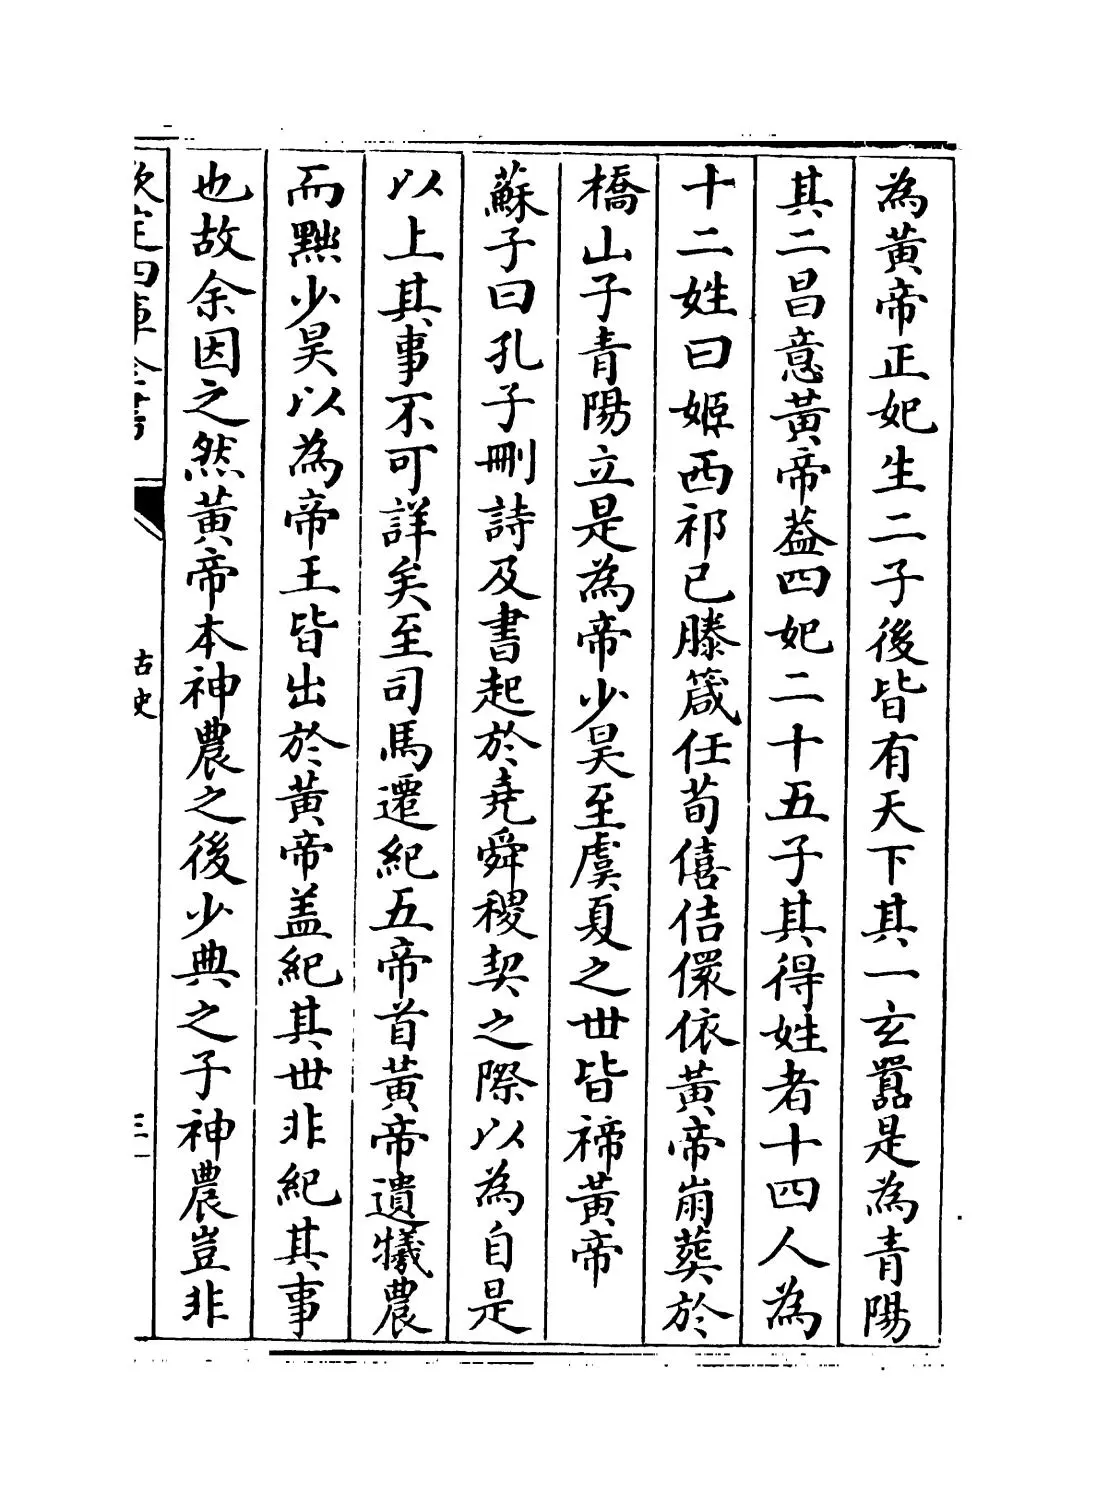 為黃帝正妃生二子後皆有天下其一玄囂是為青陽
其二昌意黃帝葢四妃二十五子其得姓者十四人為
十二姓曰姬西祁已滕箴任荀僖佶儇依黃帝崩葬於
橋山子青陽立是為帝少昊至虞夏之世皆禘黃帝
蘇子曰孔子刪詩及書起於堯舜稷契之際以為自是
以上其事不可詳矣至司馬遷紀五帝首黃帝遺犧農
而黜少昊以為帝王皆出於黃帝盖紀其世非紀其事
也故余因之然黃帝本神農之後少典之子神農豈非
欽定四庫全書
古史
三